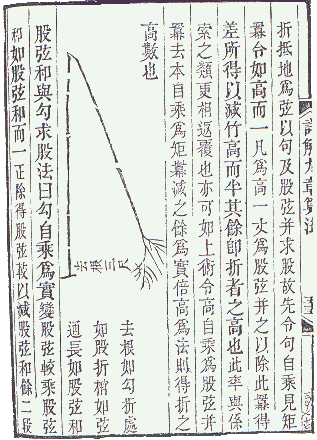 折抵地為弦以句及股弦并求股故先令句自乘見矩
冪令如高而一凡為高一丈為股弦并之以除此冪得
差所得以減竹高而半其餘即折者之高也此率與係
索之類更相返覆也亦可如上術令高自乘為股弦并
冪去本自乘為矩冪減之餘為實倍高為法則得折之
高數也
去根三尺
去根如勾折處
如股折梢如弦
通長如股弦和
股弦和與勾求股法曰勾自乘為實變股弦較乘股弦
和如股弦和而一正除得股弦較以減股弦和餘二段
詳解九章算法